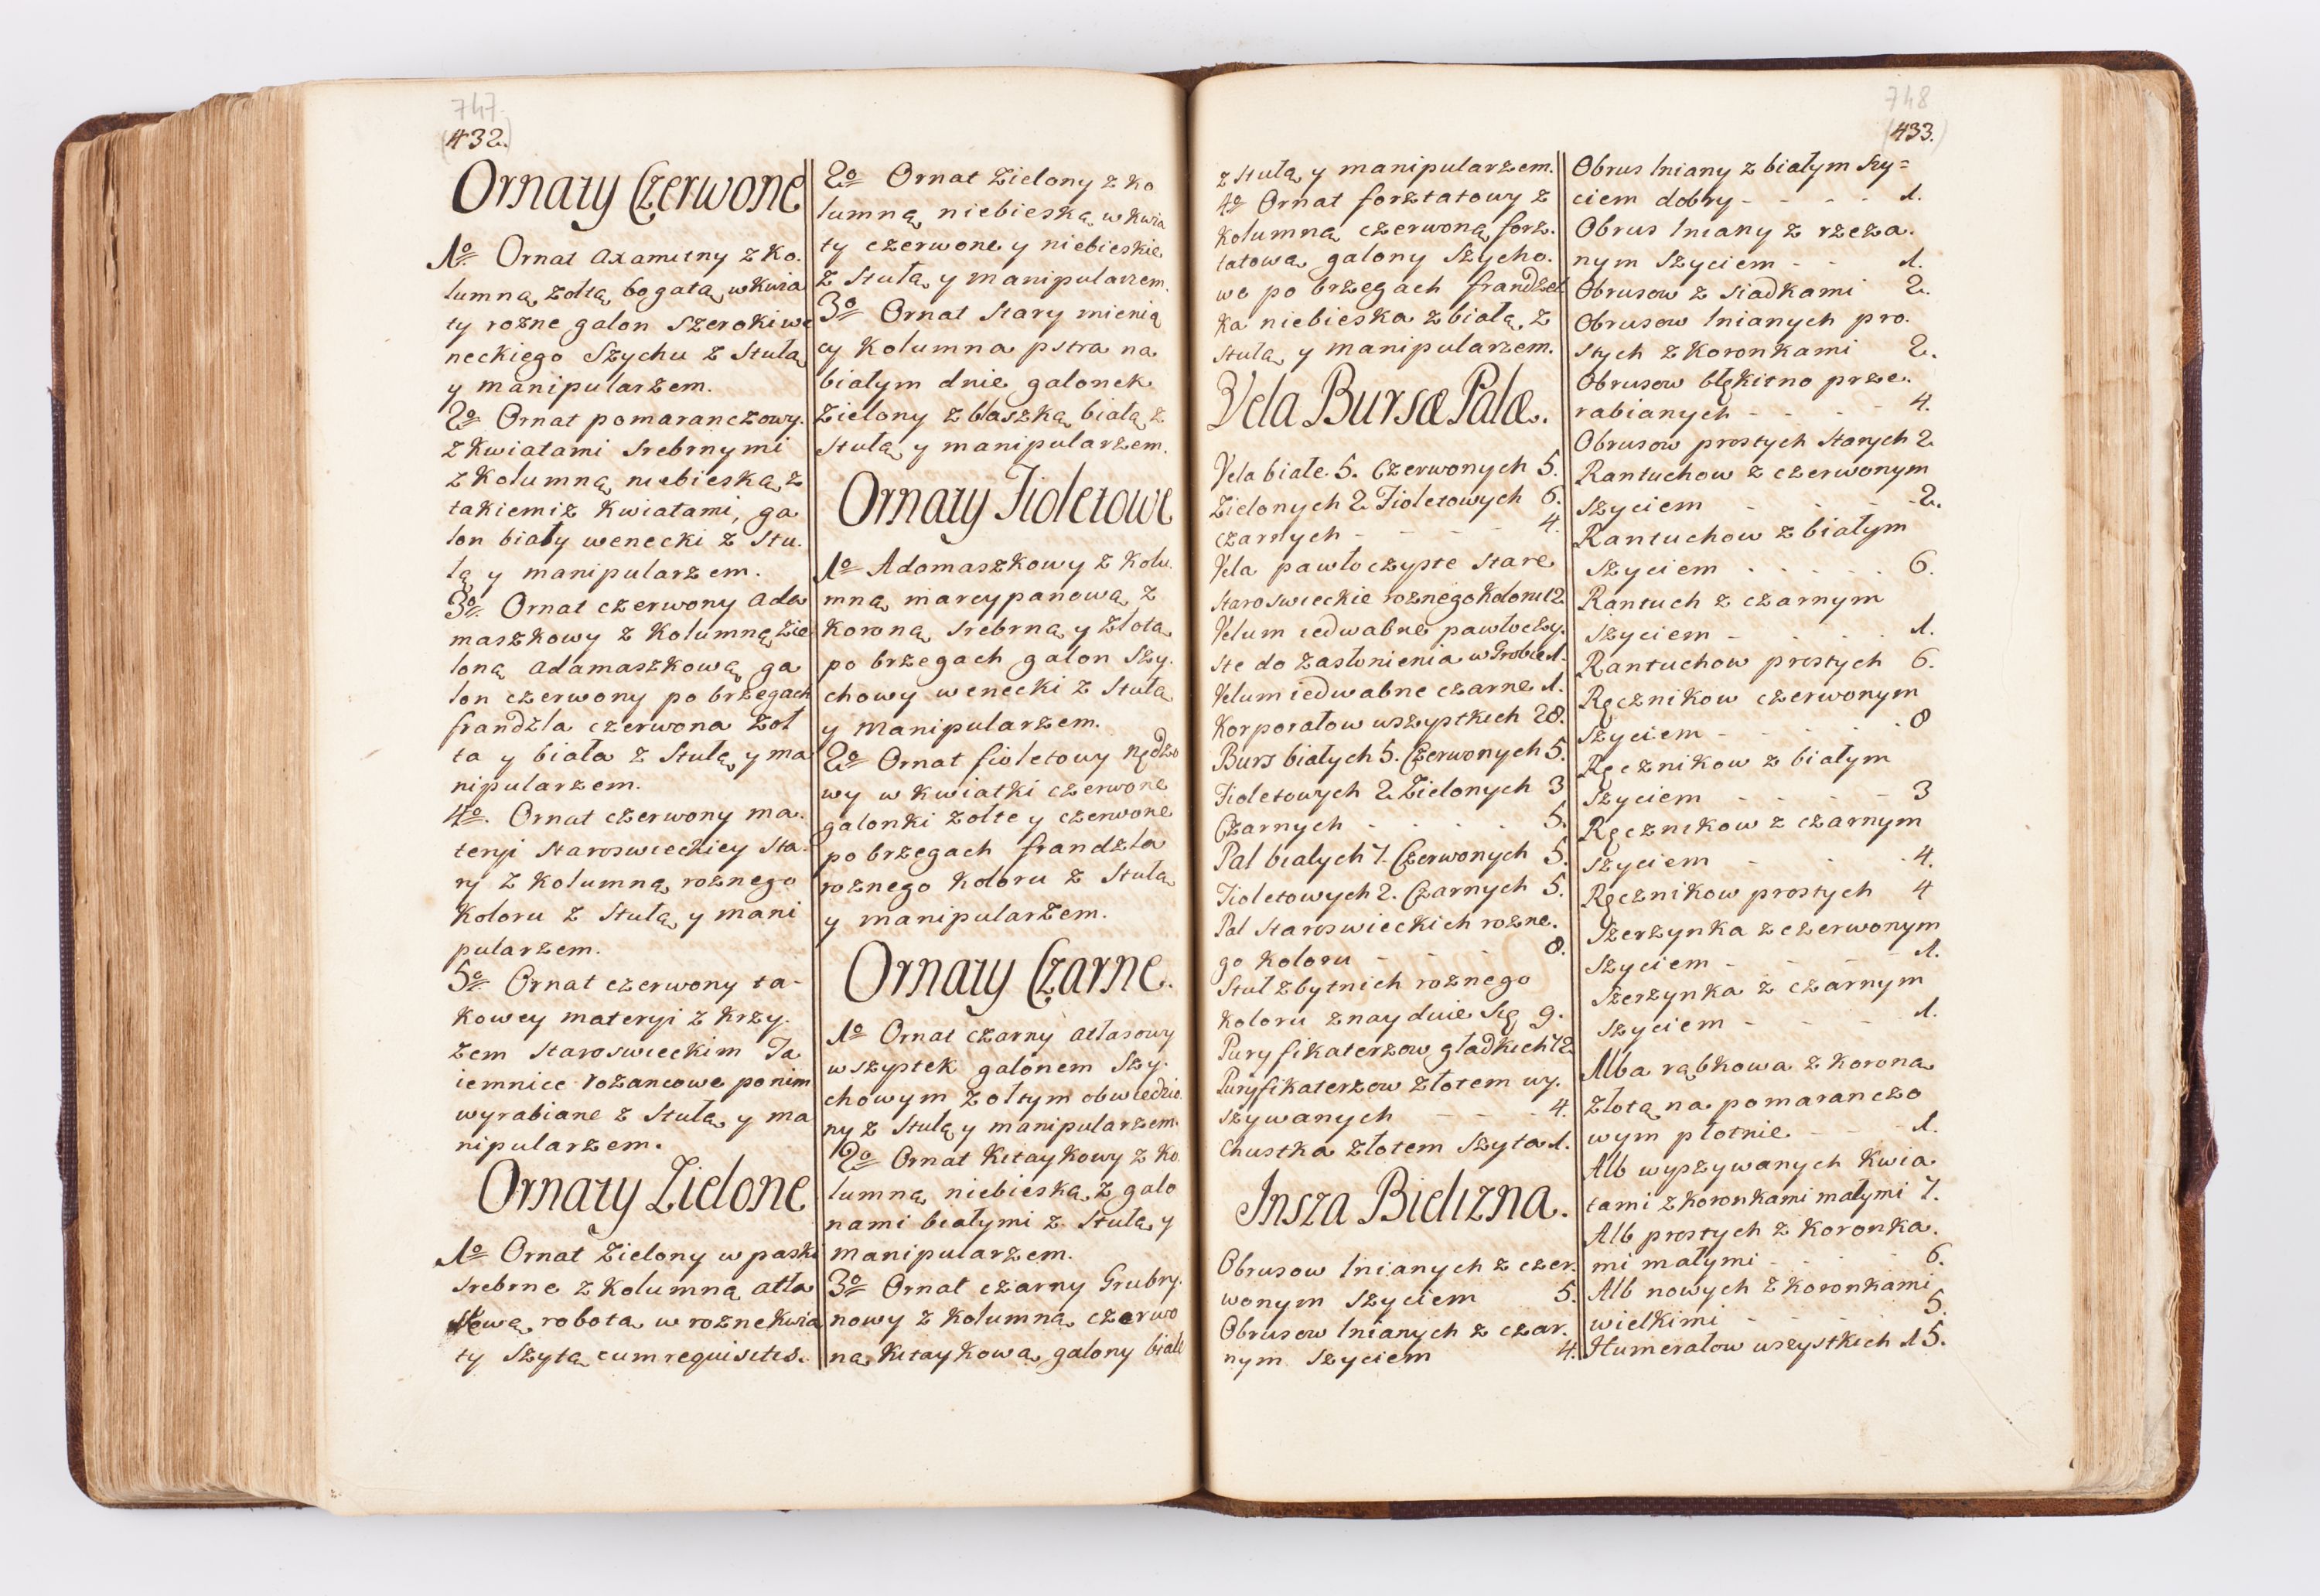 747.
(432.)
Ornaty Czerwone
1o Ornat axamitny z ko.
lumną żołtą bogatą w kwia
ty rożne galon szeroki we
neckiego Szychu z Stułą
y manipularzem.
2o Ornat pomaranczowy.
z kwiatami srebrnymi
z kolumną niebieską, z
takiemiż kwiatami, ga
lon biały wenecki z Stu.
łą y manipularzem.
3o Ornat czerwony ada
maszkowy z kolumną zie
loną adamaszkową ga
lon czerwony po brzegach
frandzla czerwona żoł
ta y biała z Stułą y ma
nipularzem.
4o. Ornat czerwony ma.
teryi staroswieckiey sta.
ry z kolumną rożnego
koloru z Stułą y mani
pularzem.
5o Ornat czerwony ta-
kowey materyi z krzy.
żem staroswieckim Ta
iemnice rożancowe po nim
wyrabiane z Stułą y ma
nipularzem.
Ornaty Zielone
1o Ornat Zielony w paski
srebrne z kolumną atła
sową robota w rożne kwia
ty szytą cum requisitis.
2o Ornat Zielony z ko
lumną niebieską w kwia
ty czerwone y niebieskie
z Stułą y manipularzem.
3o Ornat Stary mienią
cy kolumna pstra na
białym dnie galonek
zielony z blaszką białą z
stułą y manipularzem.
Ornaty Fioletowe
1o Adomaszkowy z kolu.
mną marcypanową z
koroną srebrną y złotą
po brzegach galon szy.
chowy wenecki z Stułą
y Manipularzem.
2o Ornat fioletowy nędzo
wy w kwiatki czerwone
galonki żołte y czerwone
po brzegach frandzla
rożnego koloru z Stułą
y manipularzem.
Ornaty Czarne.
1o Ornat czarny atłasowy
wszystek galonem szy.
chowym żołtym obwiedzio.
ny z Stułą y manipularzem.
2o Ornat Kitaykowy z ko.
lumną niebieską z galo
nami białymi z Stułą y
manipularzem.
3o Ornat czarny Grubry.
nowy z kolumną czerwo
ną kitaykową galony białe
748
(433.)
z Stułą y manipularzem.
4o Ornat forsztatowy z
kolumną czerwoną forsz.
tatową galony szycho.
we po brzegach frandzel.
ka niebieska z białą, z
stułą y manipularzem.
Vela Bursæ Palæ.
Vela białe 5. Czerwonych 5.
Zielonych 2 Fioletowych 6.
czarnych - - - - 4.
Vela pawłoczyste stare
staroswieckie rożnego koloru 12
Velum iedwabne pawłoczy.
ste do zasłonienia w Grobie 1.
Velum iedwabne czarne 1.
Korporałow wszystkich 28.
Burs białych 5. Czerwonych 5.
Fioletowych 2. Zielonych 3
Czarnych - - - - 5.
Pal białych 7. Czerwonych 5.
Fioletowych 2. Czarnych 5.
Pal staroswieckich rożne.
go koloru - - - - 8.
Stuł zbytnich rożnego
koloru znayduie się 9.
Puryfikaterzow gładkich 72
Puryfikaterzow złotem wy.
szywanych - - - 4.
Chustka złotem szyta 1.
Insza Bielizna.
Obrusow lnianych z czer.
wonym szyciem 5.
Obrusow lnianych z czar.
nym szyciem 4.
Obrus lniany z białym szy=
ciem dobry - - - - 1.
Obrus lniany z rzeza.
nym szyciem - - 1.
Obrusow z siadkami 2.
Obrusow lnianych pro.
stych z koronkami 2.
Obrusow błękitno prze.
rabianych - - - - 4.
Obrusow prostych starych 2
Rantuchow z czerwonym
szyciem - - - - 2.
Rantuchow z białym
szyciem - - - - 6.
Rantuch z czarnym
szyciem - - - - 1.
Rantuchow prostych 6.
Ręcznikow czerwonym
szyciem - - - - 8
Ręcznikow z białym
szyciem - - - - 3
Ręcznikow z czarnym
szyciem - - - 4.
Ręcznikow prostych 4
Szerzynka z czerwonym
szyciem - - - - 1.
Szerzynka z czarnym
szyciem - - - 1.
Alba rąbkowa z koroną
złotą na pomaranczo
wym płotnie - - - 1.
Alb wyszywanych kwia
tami z koronkami małymi 7.
Alb prostych z koronka.
mi małymi - - - 6.
Alb nowych z koronkami
wielkimi - - - - 5.
Humerałow wszystkich 15.